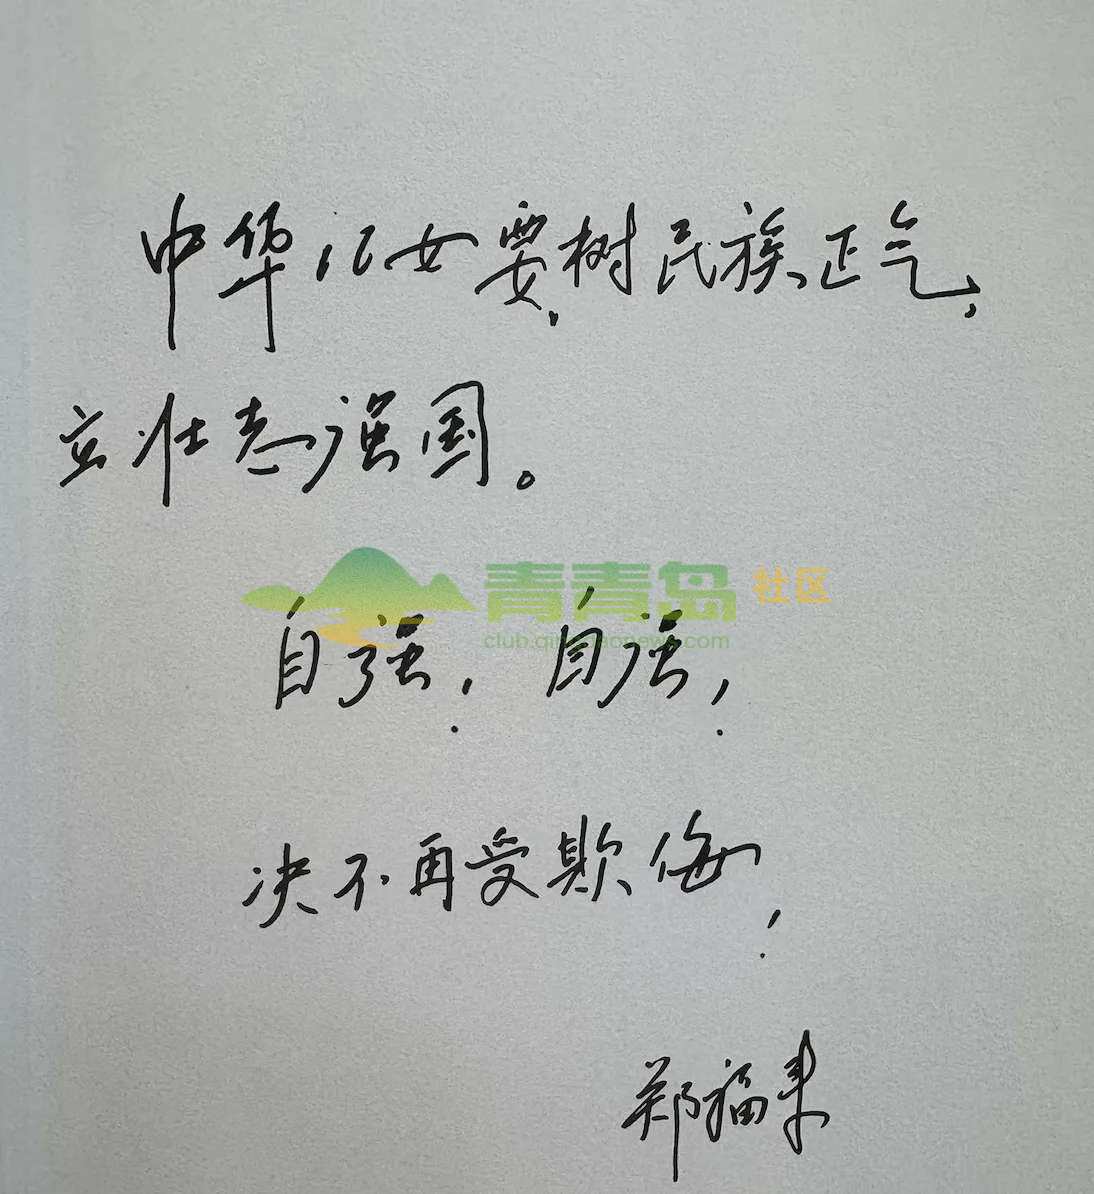 中华儿女要树民族正气，
立壮志强国。
青青岛 社区
club.qingdaonews.com
自强！自强！
决不再受欺侮！
郑福来